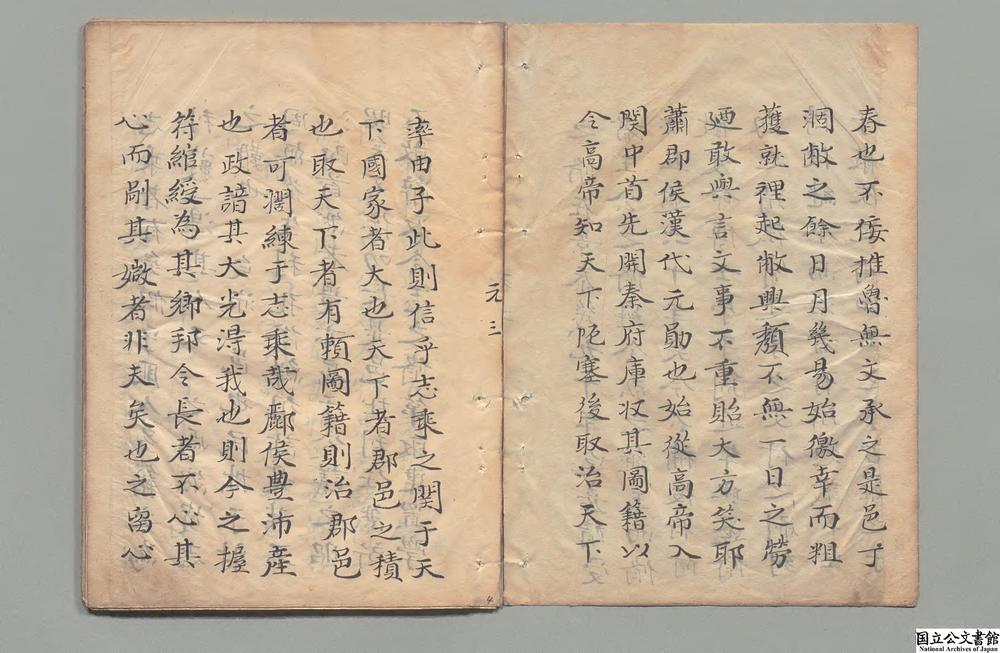 春也不佞推魯無文承之是邑于
凋敝之餘日月幾易始徼幸而粗
獲就裡起敝興頹不無丁日之勞
廼敢與言文事不重貽大方笑耶
蕭郡侯漢代元勛也始從高帝入
関中首先開秦府庫収其圖籍以
令高帝知天下阨塞後取治天下
元三
率由子此則信乎志乘之関于天
下國家者大也天下者郡邑之積
也取天下者有頼圖籍則治郡邑
者可濶練于志乘哉酈侯豊沛産
也政諳其大光淂我也則今之握
符綰綬為其郷邦令長者不心其
心而剮其媺者非夫矣也之留心
国立公文書館
National Archives of Japan